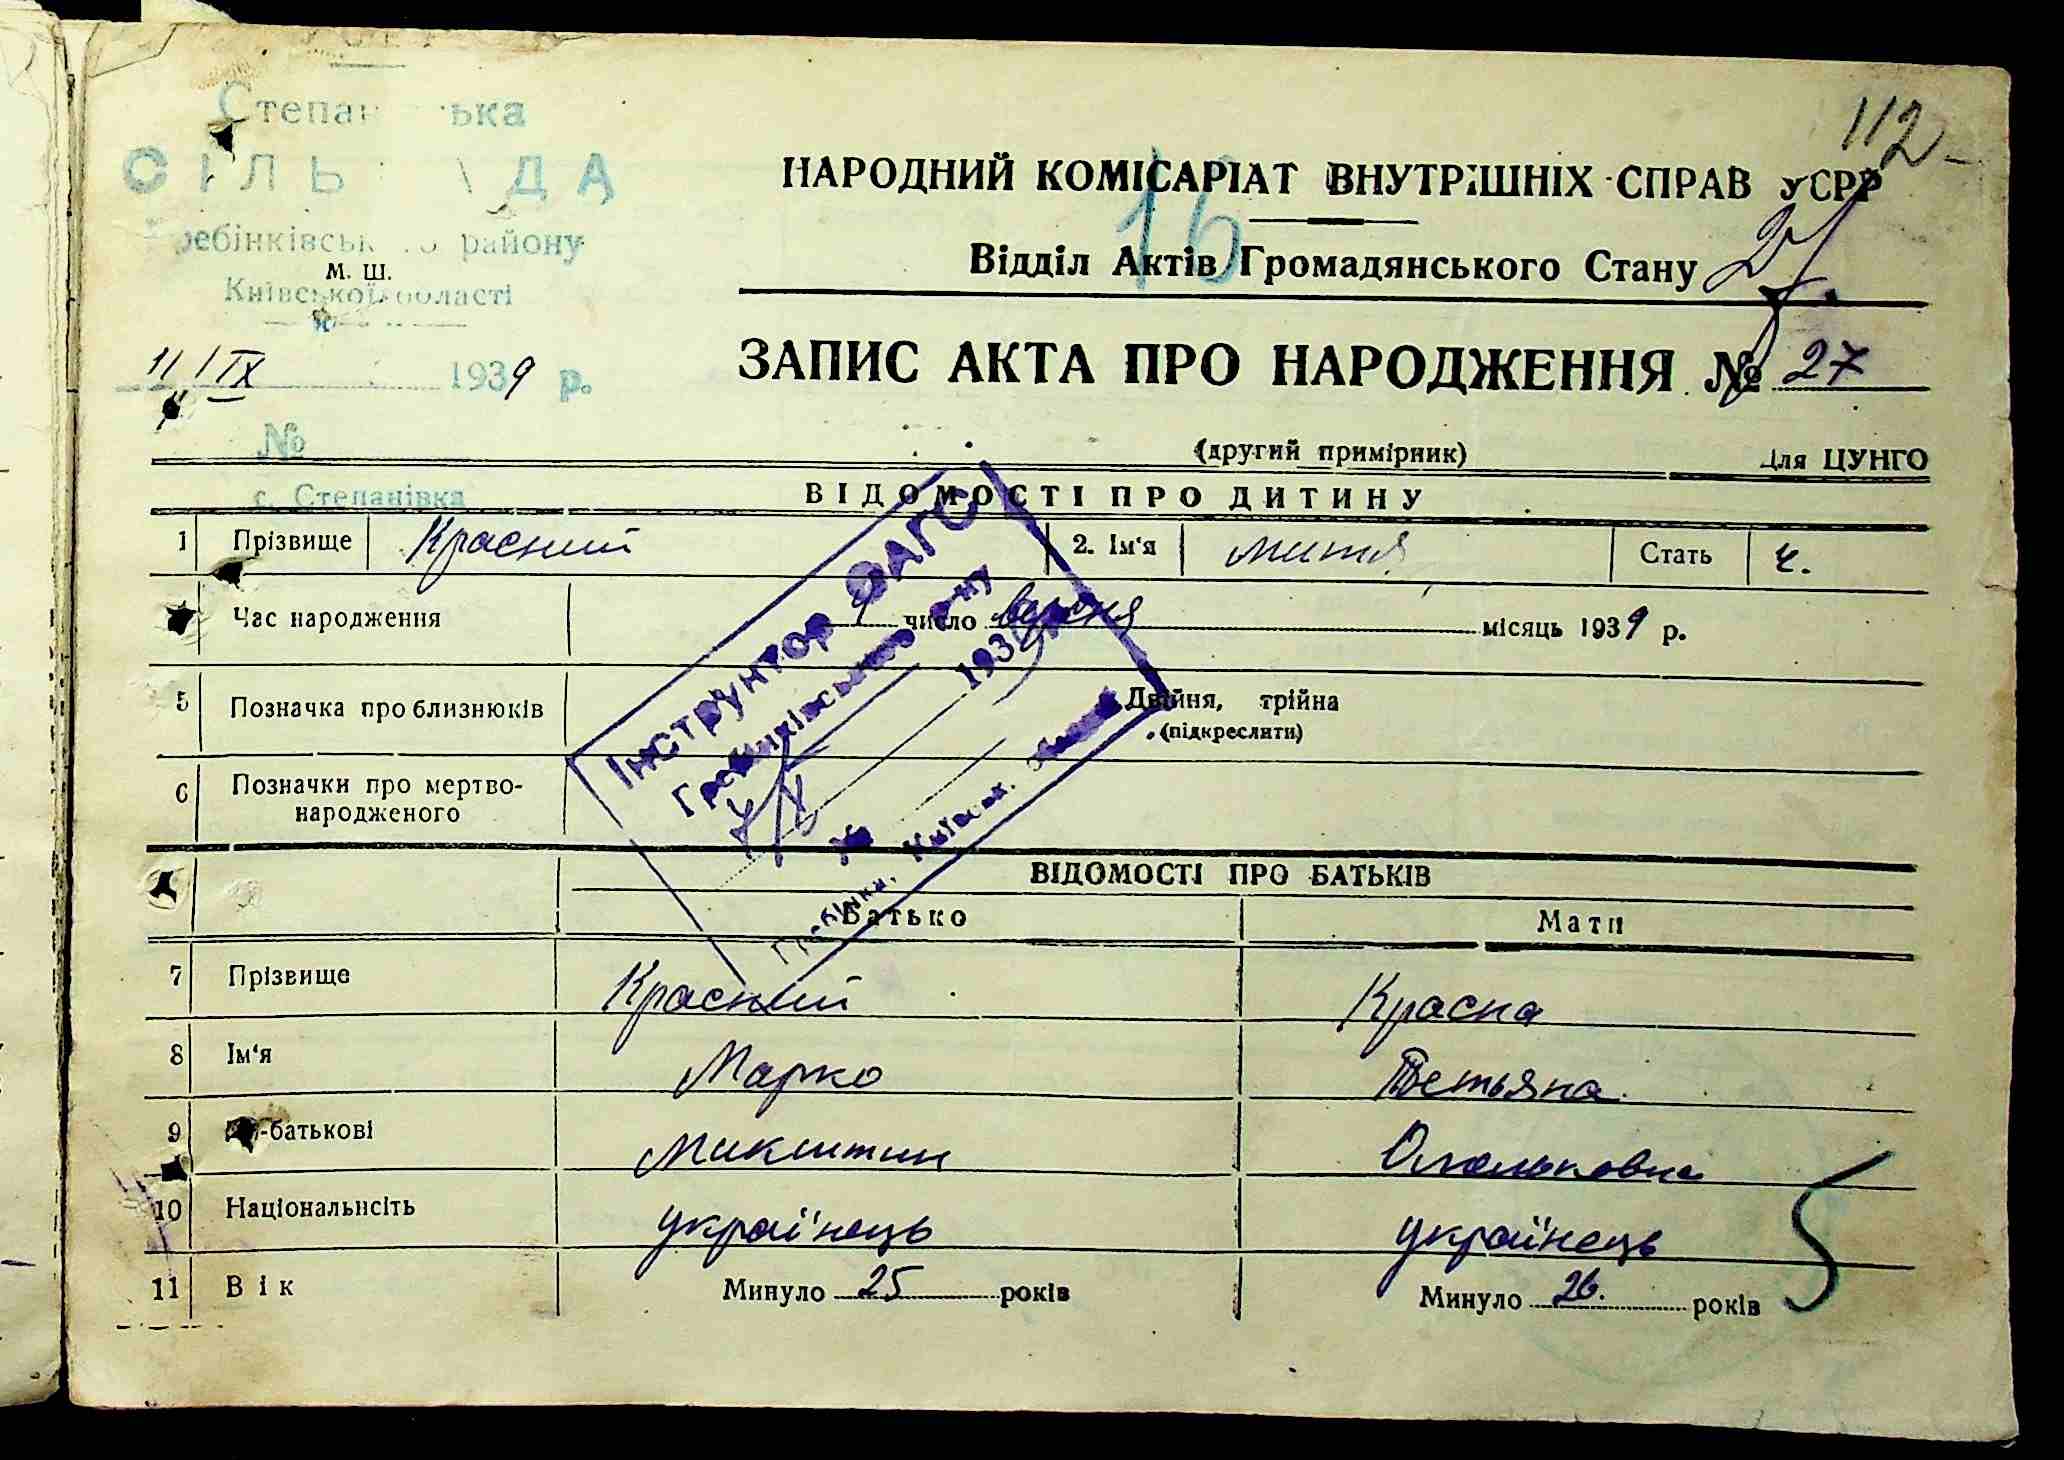 112
Степан ька
СІЛЬ АДА
ребінківського району
М. Ш.
Київської області
11/IX 1939 р.
№
с. Степанівка
НАРОДНИЙ КОМІСАРІАТ ВНУТРІШНІХ СПРАВ УСРР
16
Відділ Актів Громадянського Стану
ЗАПИС АКТА ПРО НАРОДЖЕННЯ № 27
(другий примірник) Для ЦУНГО
ВІДОМОСТІ ПРО ДИТИНУ
1 Прізвище Красний 2. Ім'я Митя Стать ч.
Час народження 9 число вересня місяць 1939 р.
5 Позначка про близнюків Двійня, трійна
(підкреслити)
6 Позначки про мертво-
народженого
Інструктор ЗАГС
Гребінківського р-ну
193
Гребінки, Київськ.
ВІДОМОСТІ ПРО БАТЬКІВ
Батько Мати
7 Прізвище Красний Красна
8 Ім'я Марко Тетьяна
9 По-батькові Микитин Омельковна
10 Національність українець українець
11 Вік Минуло 25 років Минуло 26. років
5